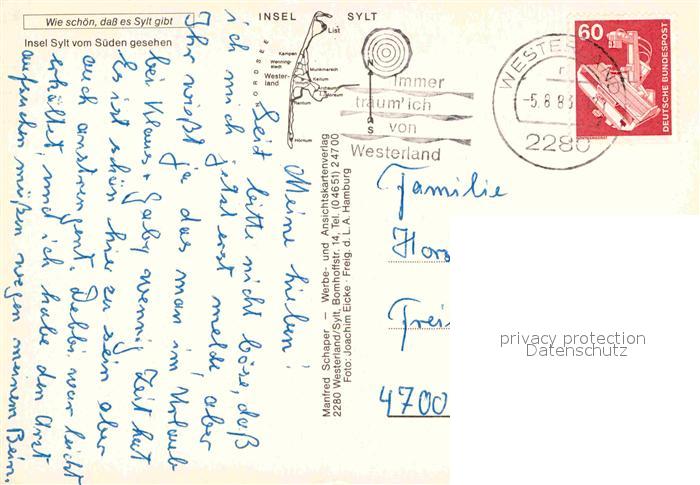 Wie schön, daß es Sylt gibt
Insel Sylt vom Süden gesehen
INSEL SYLT
NORDSEE
List
Kampen
Wenning-
stedt
Munkmarsch
Wester-
land
Keitum
Rantum
Hörnum
N
S
Immer
träum' ich
von
Westerland
WESTERLAND
-5.8.83
2280
60
DEUTSCHE BUNDESPOST
Manfred Schaper — Werbe- und Ansichtskartenverlag
2280 Westerland/Sylt, Bomhoffstr. 14, Tel. (04651) 24700
Foto: Joachim Eicke · Freig. d. L. A. Hamburg
Meine Lieben!
Seid bitte nicht böse, daß
ich mich jetzt erst melde, aber
Ihr wißt ja das man im Urlaub
bei Klaus + Gaby wennig Zeit hat
Es ist schön hier zu sein aber
auch anstrengent. Debbi war leicht
erkältet, und ich habe den Arzt
aufsuchen müßen wegen meinem Bein.
Familie
Hors
Freis
4700
privacy protection
Datenschutz